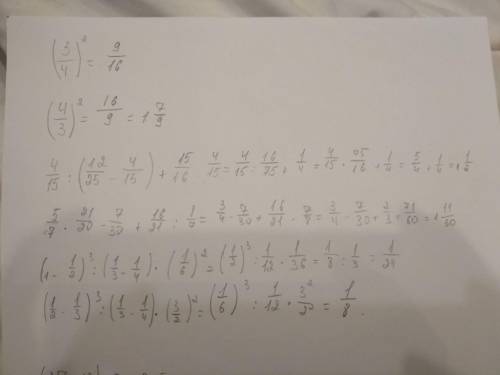 (3/4)² = 9/16
(4/3)² = 16/9 = 1 7/9
4/15 : (12/25 - 4/15) + 15/16 · 4/15 = 4/15 : 16/75 + 1/4 = 4/15 · 75/16 + 1/4 = 5/4 + 1/4 = 1 1/2
5/7 · 21/20 - 7/30 + 16/21 : 8/7 = 3/4 - 7/30 + 16/21 · 7/8 = 3/4 - 7/30 + 2/3 = 71/60 = 1 11/60
(1 - 1/2)³ : (1/3 - 1/4) · (1/6)² = (1/2)³ : 1/12 · 1/36 = 1/8 : 1/3 = 1/24
(1/2 - 1/3)³ : (1/3 - 1/4) · (3/2)² = (1/6)³ : 1/12 · 3²/2² = 1/8.